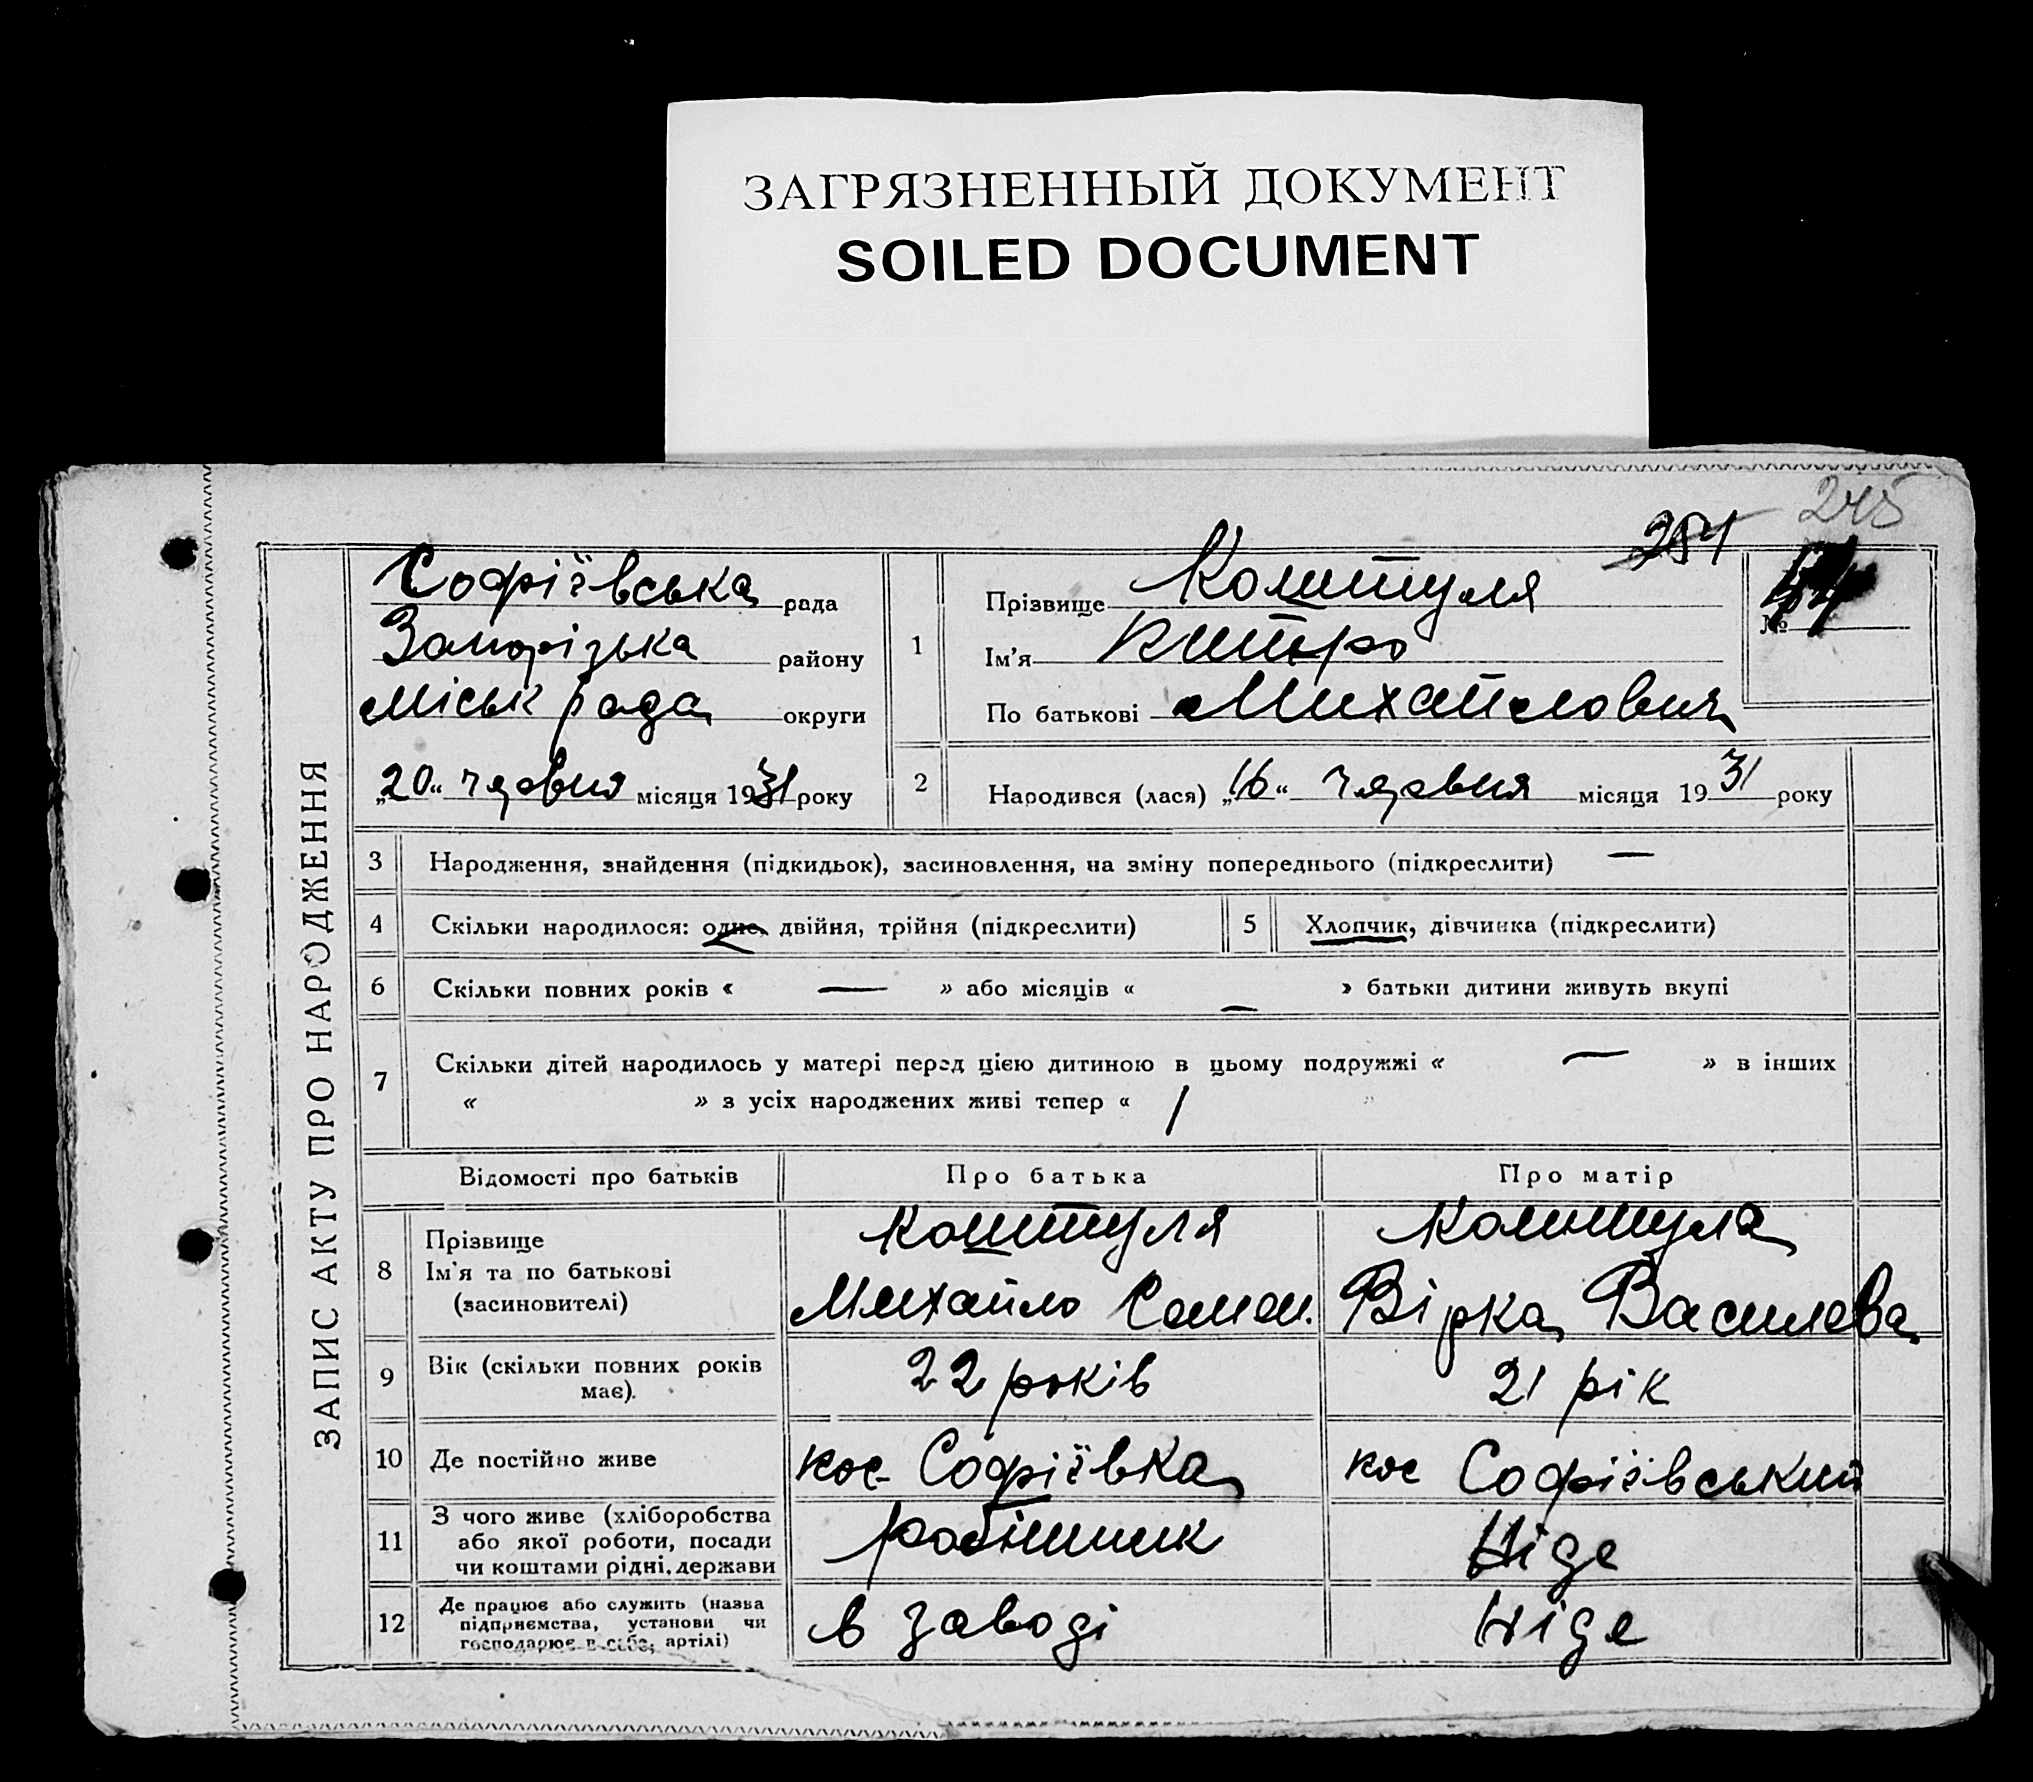 ЗАГРЯЗНЕННЫЙ ДОКУМЕНТ
SOILED DOCUMENT
245
254
ЗАПИС АКТУ ПРО НАРОДЖЕННЯ
Софріївська рада
Запорізька району
Міськ рада округи
„20“ червня місяця 1931 року
1
Прізвище Коштуля
Ім'я
По батькові Михайлович
№ 44
2 Народився (лася) „16“ червня місяця 1931 року
3 Народження, знайдення (підкидьок), засиновлення, на зміну попереднього (підкреслити) —
4 Скільки народилося: одне, двійня, трійня (підкреслити)
5 Хлопчик, дівчинка (підкреслити)
6 Скільки повних років « — » або місяців « — » батьки дитини живуть вкупі
7 Скільки дітей народилось у матері перед цією дитиною в цьому подружжі « — » в інших
« » з усіх народжених живі тепер « 1 »
Відомості про батьків Про батька Про матір
8 Прізвище
Ім'я та по батькові
(засиновителі)
Коштуля
Михайло Семен.
Коштула
Вірка Василева
9 Вік (скільки повних років
має).
22 років
21 рік
10 Де постійно живе
кос. Софріївка
кос Софріївський
11 З чого живе (хліборобства
або якої роботи, посади
чи коштами рідні, держави
робітник
Ніде
12 Де працює або служить (назва
підприємства, установи чи
господарює в себе, артілі)
в заводі
Ніде